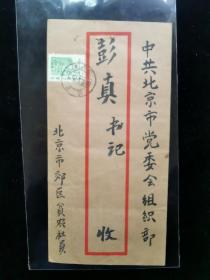 中共北京市党委会组织部
彭真书记 收
北京市郊区贫农社员